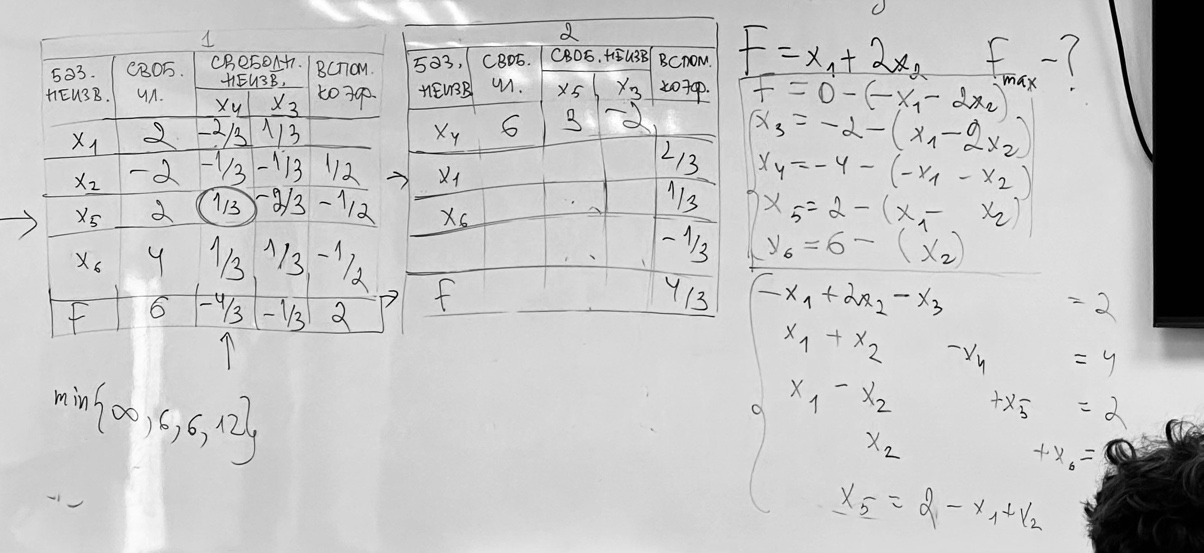 1
БАЗ. НЕИЗВ. СВОБ. ЧЛ. СВОБОДН. НЕИЗВ. ВСПОМ. КОЭФ.
x4 x3
x1 2 -2/3 1/3
x2 -2 -1/3 -1/3 1/2
→ x5 2 1/3 -2/3 -1/2
x6 4 1/3 1/3 -1/2
F 6 -4/3 -1/3 2
↑
min{∞, 6, 6, 12}
2
БАЗ. НЕИЗВ СВОБ. ЧЛ. СВОБ. НЕИЗВ ВСПОМ. КОЭФ.
x5 x3
x4 6 3 -2
→ x1 2/3
x6 1/3
-1/3
→ F 4/3
F = x1 + 2x2 Fmax - ?
F = 0 - (-x1 - 2x2)
x3 = -2 - (x1 - 2x2)
x4 = -4 - (-x1 - x2)
x5 = 2 - (x1 - x2)
x6 = 6 - (x2)
-x1 + 2x2 - x3 = 2
x1 + x2 - x4 = 4
x1 - x2 + x5 = 2
x2 + x6 =
x5 = 2 - x1 + x2